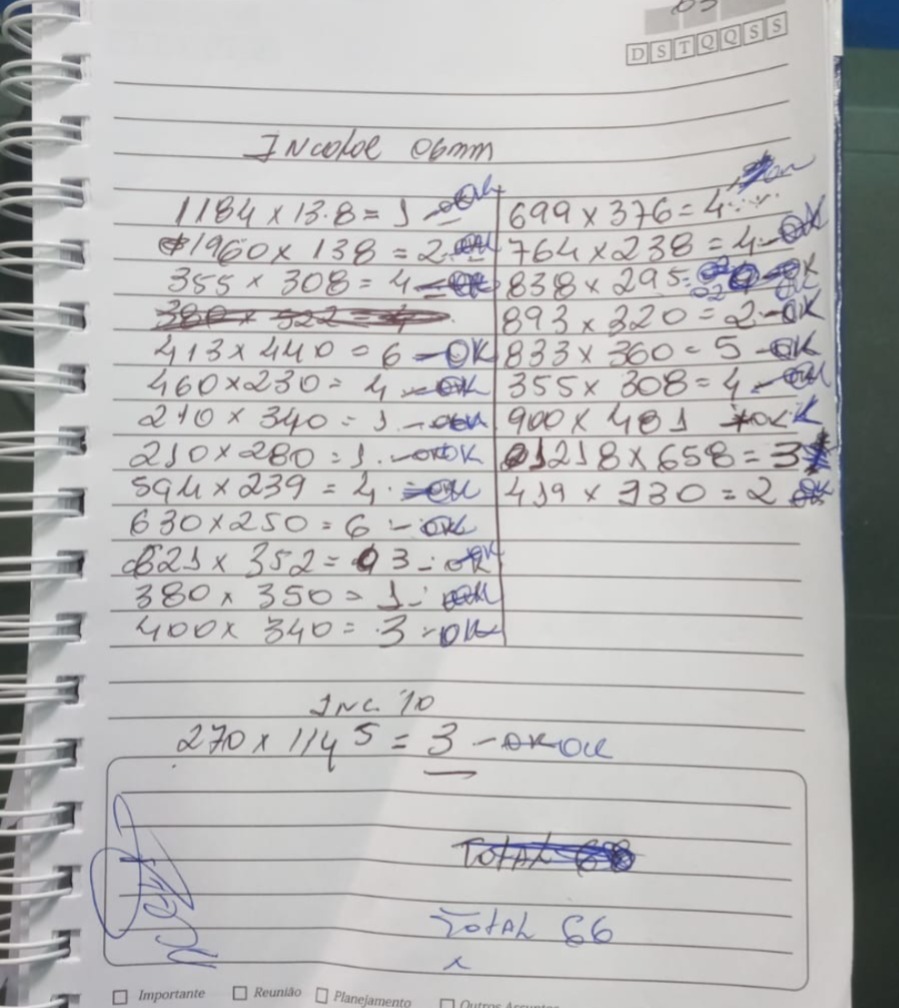 D S T Q Q S S
Incolor 06mm
1184 x 138 = 1 - OK
1960 x 138 = 2 - OK
355 x 308 = 4 - OK
380 x 322 = 4
413 x 440 = 6 - OK
460 x 230 = 4 - OK
210 x 340 = 1 - OK
210 x 280 = 1 - OK OK
594 x 239 = 4 - OK
630 x 250 = 6 - OK
621 x 352 = 3 - OK
380 x 350 = 1 - OK
400 x 340 = 3 - OK
699 x 376 = 4
764 x 238 = 4 - OK
838 x 295 = 02 OK
893 x 320 = 2 - OK
833 x 360 = 5 - OK
355 x 308 = 4 - OK
900 x 481 OK
1218 x 658 = 3
419 x 730 = 2 OK
Inc. 10
270 x 1145 = 3 - OK OK
Total 68
Total 66
Importante Reunião Planejamento Outros